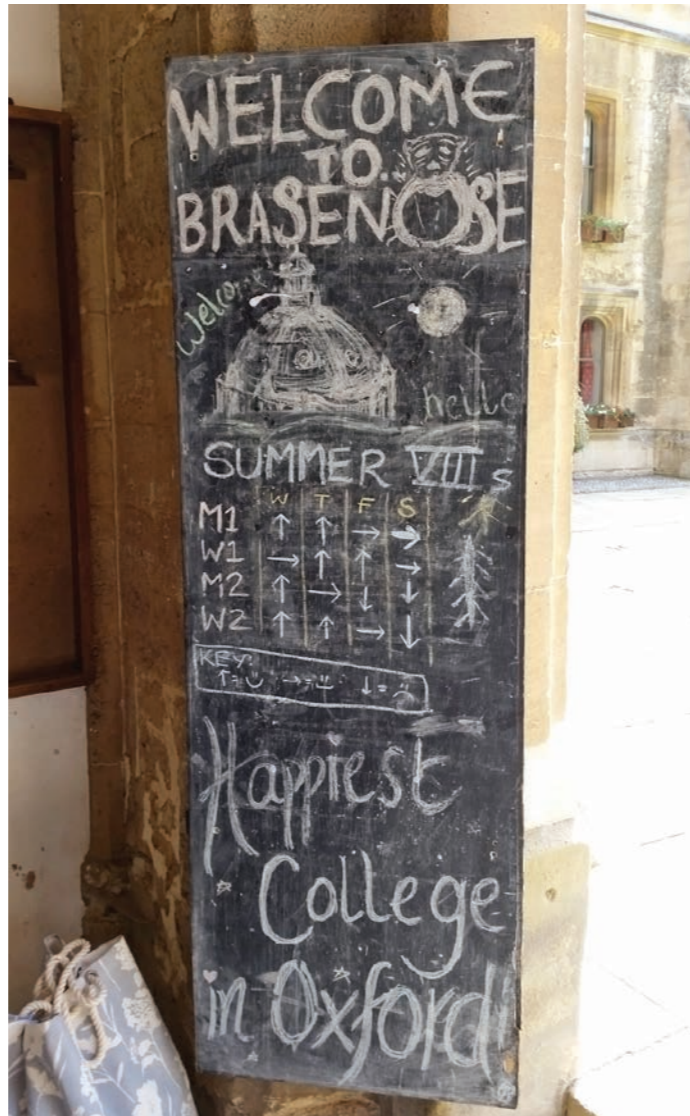 WELCOME
TO
BRASENOSE
Welcome!
hello
SUMMER VIIIs
W T F S
M1 ↑ ↑ → →
W1 → ↑ ↑ →
M2 ↑ → ↓ ↓
W2 ↑ ↑ → ↓
KEY:
↑=☺ →=😐 ↓=☹
Happiest
College
in Oxford!